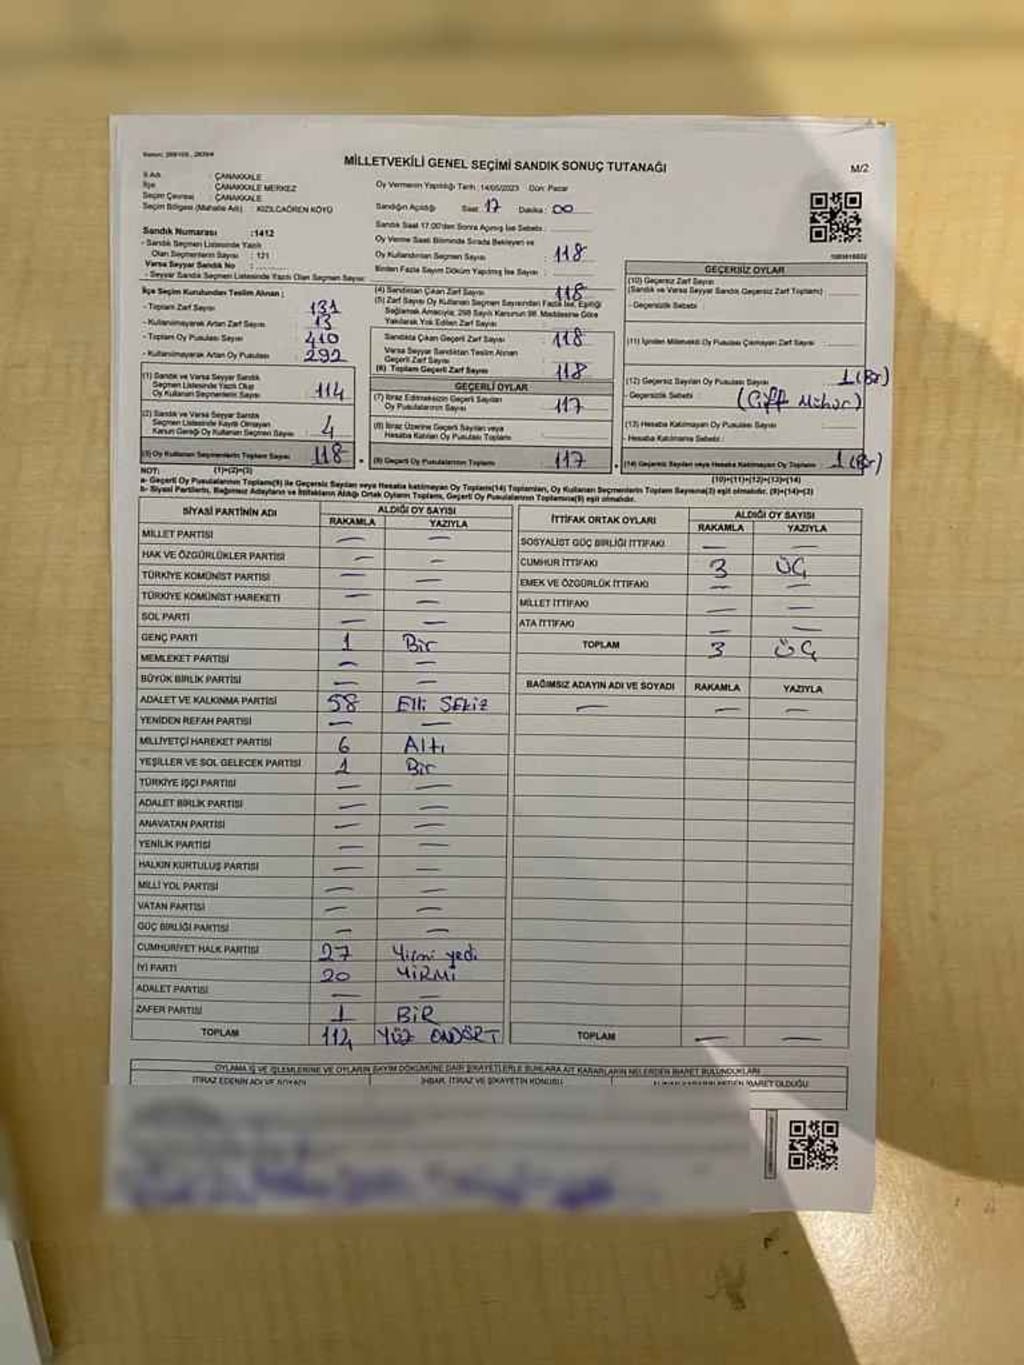 MİLLETVEKİLİ GENEL SEÇİMİ SANDIK SONUÇ TUTANAĞI
M/2
İl Adı : ÇANAKKALE
İlçe : ÇANAKKALE MERKEZ
Seçim Çevresi : ÇANAKKALE
Seçim Bölgesi (Mahalle Adı) : KIZILCAÖREN KÖYÜ
Oy Vermenin Yapıldığı Tarih : 14/05/2023 Gün: Pazar
Sandığın Açıldığı Saat : 17 Dakika : 00
Sandık Saat 17.00'den Sonra Açılmış İse Sebebi :
Sandık Numarası :1412
- Sandık Seçmen Listesinde Yazılı
Olan Seçmenlerin Sayısı : 121
Varsa Seyyar Sandık No :
- Seyyar Sandık Seçmen Listesinde Yazılı Olan Seçmen Sayısı:
Oy Verme Saati Bitiminde Sırada Bekleyen ve
Oy Kullandırılan Seçmen Sayısı : 118
Birden Fazla Sayım Döküm Yapılmış İse Sayısı :
İlçe Seçim Kurulundan Teslim Alınan ;
- Toplam Zarf Sayısı : 131
- Kullanılmayarak Artan Zarf Sayısı : 13
- Toplam Oy Pusulası : 410
- Kullanılmayarak Artan Oy Pusulası : 292
(1) Sandık ve Varsa Seyyar Sandık
Seçmen Listesinde Yazılı Olup
Oy Kullanan Seçmenlerin Sayısı : 114
(2) Sandık ve Varsa Seyyar Sandık
Seçmen Listesinde Kayıtlı Olmayan
Kanun Gereği Oy Kullanan Seçmen Sayısı : 4
(3) Oy Kullanan Seçmenlerin Toplam Sayısı : 118
(1)+(2)=(3)
(4) Sandıktan Çıkan Zarf Sayısı : 118
(5) Zarf Sayısı Oy Kullanan Seçmen Sayısından Fazla İse, Eşitliği
Sağlamak Amacıyla, 298 Sayılı Kanunun 98. Maddesine Göre
Yakılarak Yok Edilen Zarf Sayısı :
Sandıkta Çıkan Geçerli Zarf Sayısı : 118
Varsa Seyyar Sandıktan Teslim Alınan
Geçerli Zarf Sayısı :
(6) Toplam Geçerli Zarf Sayısı : 118
GEÇERLİ OYLAR
(7) İtiraz Edilmeksizin Geçerli Sayılan
Oy Pusulalarının Sayısı : 117
(8) İtiraz Üzerine Geçerli Sayılan veya
Hesaba Katılan Oy Pusulası Toplamı :
(9) Geçerli Oy Pusulalarının Toplamı : 117
GEÇERSİZ OYLAR
(10) Geçersiz Zarf Sayısı
(Sandık ve Varsa Seyyar Sandık Geçersiz Zarf Toplamı) :
- Geçersizlik Sebebi :
(11) İçinden Milletvekili Oy Pusulası Çıkmayan Zarf Sayısı :
(12) Geçersiz Sayılan Oy Pusulası Sayısı : 1 (Bir)
- Geçersizlik Sebebi : (Çift Mühür)
(13) Hesaba Katılmayan Oy Pusulası Sayısı :
- Hesaba Katılmama Sebebi :
(14) Geçersiz Sayılan veya Hesaba Katılmayan Oy Toplamı : 1 (Bir)
(10)+(11)+(12)+(13)=(14)
NOT:
a- Geçerli Oy Pusulaları Toplamı(9) ile Geçersiz Sayılan veya Hesaba Katılmayan Oy Toplamı(14) Toplamları, Oy Kullanan Seçmenlerin Toplam Sayısına(3) eşit olmalıdır. (9)+(14)=(3)
b- Siyasi Partilerin, Bağımsız Adayların ve İttifakların Aldığı Ortak Oyların Toplamı, Geçerli Oy Pusulalarının Toplamına(9) eşit olmalıdır.
SİYASİ PARTİNİN ADI ALDIĞI OY SAYISI
RAKAMLA YAZIYLA
MİLLET PARTİSİ — —
HAK VE ÖZGÜRLÜKLER PARTİSİ — —
TÜRKİYE KOMÜNİST PARTİSİ — —
TÜRKİYE KOMÜNİST HAREKETİ — —
SOL PARTİ — —
GENÇ PARTİ 1 Bir
MEMLEKET PARTİSİ — —
BÜYÜK BİRLİK PARTİSİ — —
ADALET VE KALKINMA PARTİSİ 58 Elli SEkiz
YENİDEN REFAH PARTİSİ — —
MİLLİYETÇİ HAREKET PARTİSİ 6 Altı
YEŞİLLER VE SOL GELECEK PARTİSİ 1 Bir
TÜRKİYE İŞÇİ PARTİSİ — —
ADALET BİRLİK PARTİSİ — —
ANAVATAN PARTİSİ — —
YENİLİK PARTİSİ — —
HALKIN KURTULUŞ PARTİSİ — —
MİLLİ YOL PARTİSİ — —
VATAN PARTİSİ — —
GÜÇ BİRLİĞİ PARTİSİ — —
CUMHURİYET HALK PARTİSİ 27 Yirmi yedi
İYİ PARTİ 20 YİRMİ
ADALET PARTİSİ — —
ZAFER PARTİSİ 1 BİR
TOPLAM 114 YÜZ ONDÖRT
İTTİFAK ORTAK OYLARI ALDIĞI OY SAYISI
RAKAMLA YAZIYLA
SOSYALİST GÜÇ BİRLİĞİ İTTİFAKI — —
CUMHUR İTTİFAKI 3 ÜÇ
EMEK VE ÖZGÜRLÜK İTTİFAKI — —
MİLLET İTTİFAKI — —
ATA İTTİFAKI — —
TOPLAM 3 ÜÇ
BAĞIMSIZ ADAYIN ADI VE SOYADI RAKAMLA YAZIYLA
— — —
TOPLAM — —
OYLAMA İŞ VE İŞLEMLERİNE VE OYLARIN SAYIM DÖKÜMÜNE DAİR ŞİKAYETLERLE BUNLARA AİT KARARLARIN NELERDEN İBARET BULUNDUKLARI
İTİRAZ EDENİN ADI VE SOYADI İHBAR, İTİRAZ VE ŞİKAYETİN KONUSU